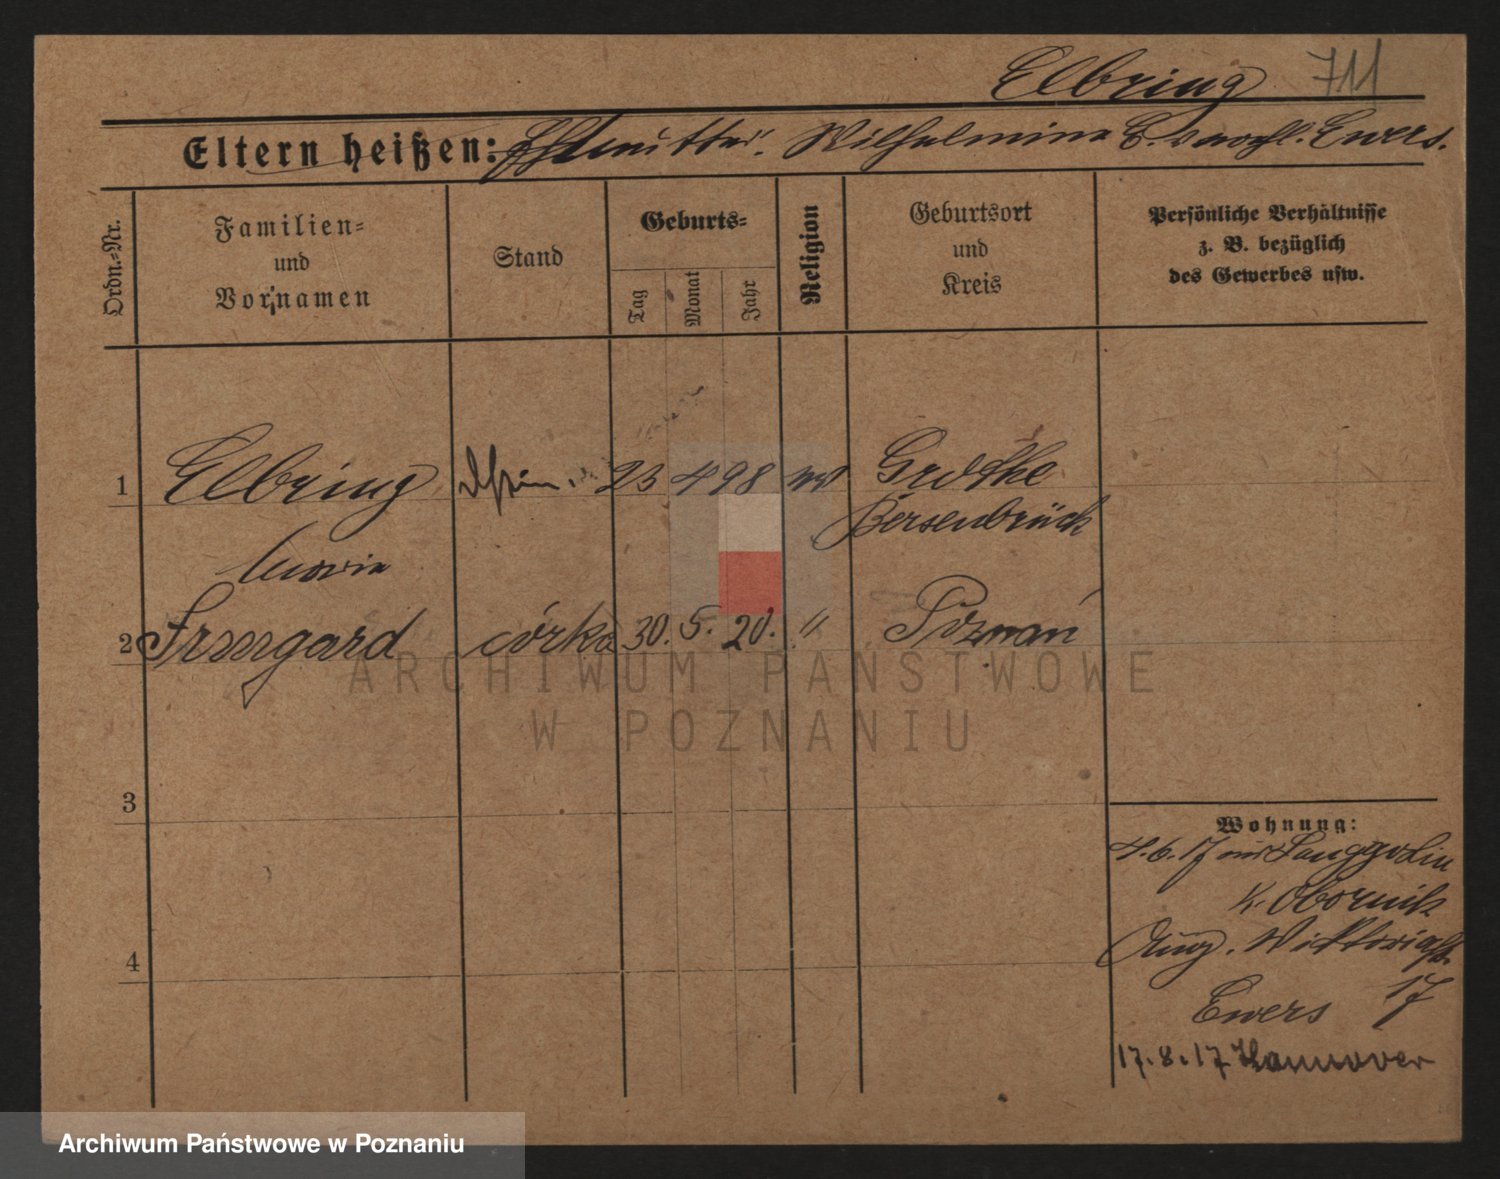 Elbring 711
Eltern heißen: Mutter: Wilhelmine E. verehl. Ewers.
Ordn.-Nr.
Familien-
und
Vornamen
Stand
Geburts-
Tag
Monat
Jahr
Religion
Geburtsort
und
Kreis
Persönliche Verhältnisse
z. B. bezüglich
des Gewerbes usw.
1 Elbring 23 4 98 Grothe
Bersenbrück
Maria
2 Irmgard córka 30. 5. 20. " Poznań
3
4
Wohnung:
4. 6. 17 aus Langgoslin
K. Obornik
Aug. Viktoriastr.
Ewers 17
17. 8. 17 Hannover
ARCHIWUM PAŃSTWOWE
W POZNANIU
Archiwum Państwowe w Poznaniu